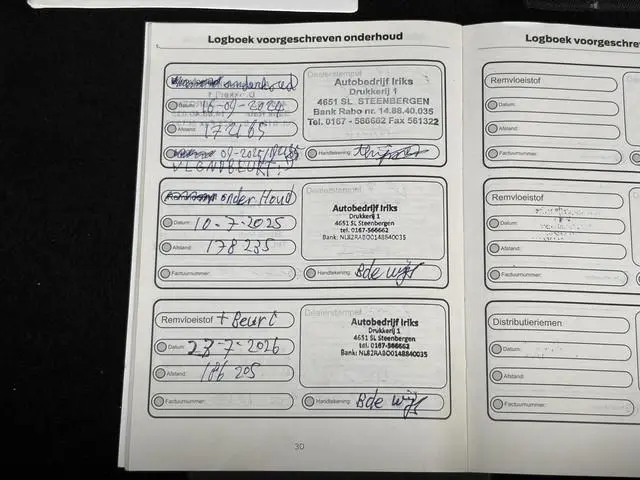 Logboek voorgeschreven onderhoud
onderhoud
Dealerstempel
Datum: 16-09-2024
Afstand: 172165
Autobedrijf Iriks
Drukkerij 1
4651 SL STEENBERGEN
Bank Rabo nr. 14.88.40.035
Tel. 0167 - 566662 Fax 561322
Handtekening:
onderHoud
Dealerstempel
Datum: 10-7-2025
Afstand: 178235
Factuurnummer:
Autobedrijf Iriks
Drukkerij 1
4651 SL Steenbergen
tel. 0167-566662
Bank: NL82RABO0148840035
Handtekening: Bde wijs
Remvloeistof + Beurt
Dealerstempel
Datum: 23-7-2026
Afstand: 186205
Factuurnummer:
Autobedrijf Iriks
Drukkerij 1
4651 SL Steenbergen
tel. 0167-566662
Bank: NL82RABO0148840035
Handtekening: Bde wijs
30
Logboek voorgeschre
Remvloeistof
Datum:
Afstand:
Factuurnummer:
Remvloeistof
Datum:
Afstand:
Factuurnummer:
Distributieriemen
Datum:
Afstand:
Factuurnummer: